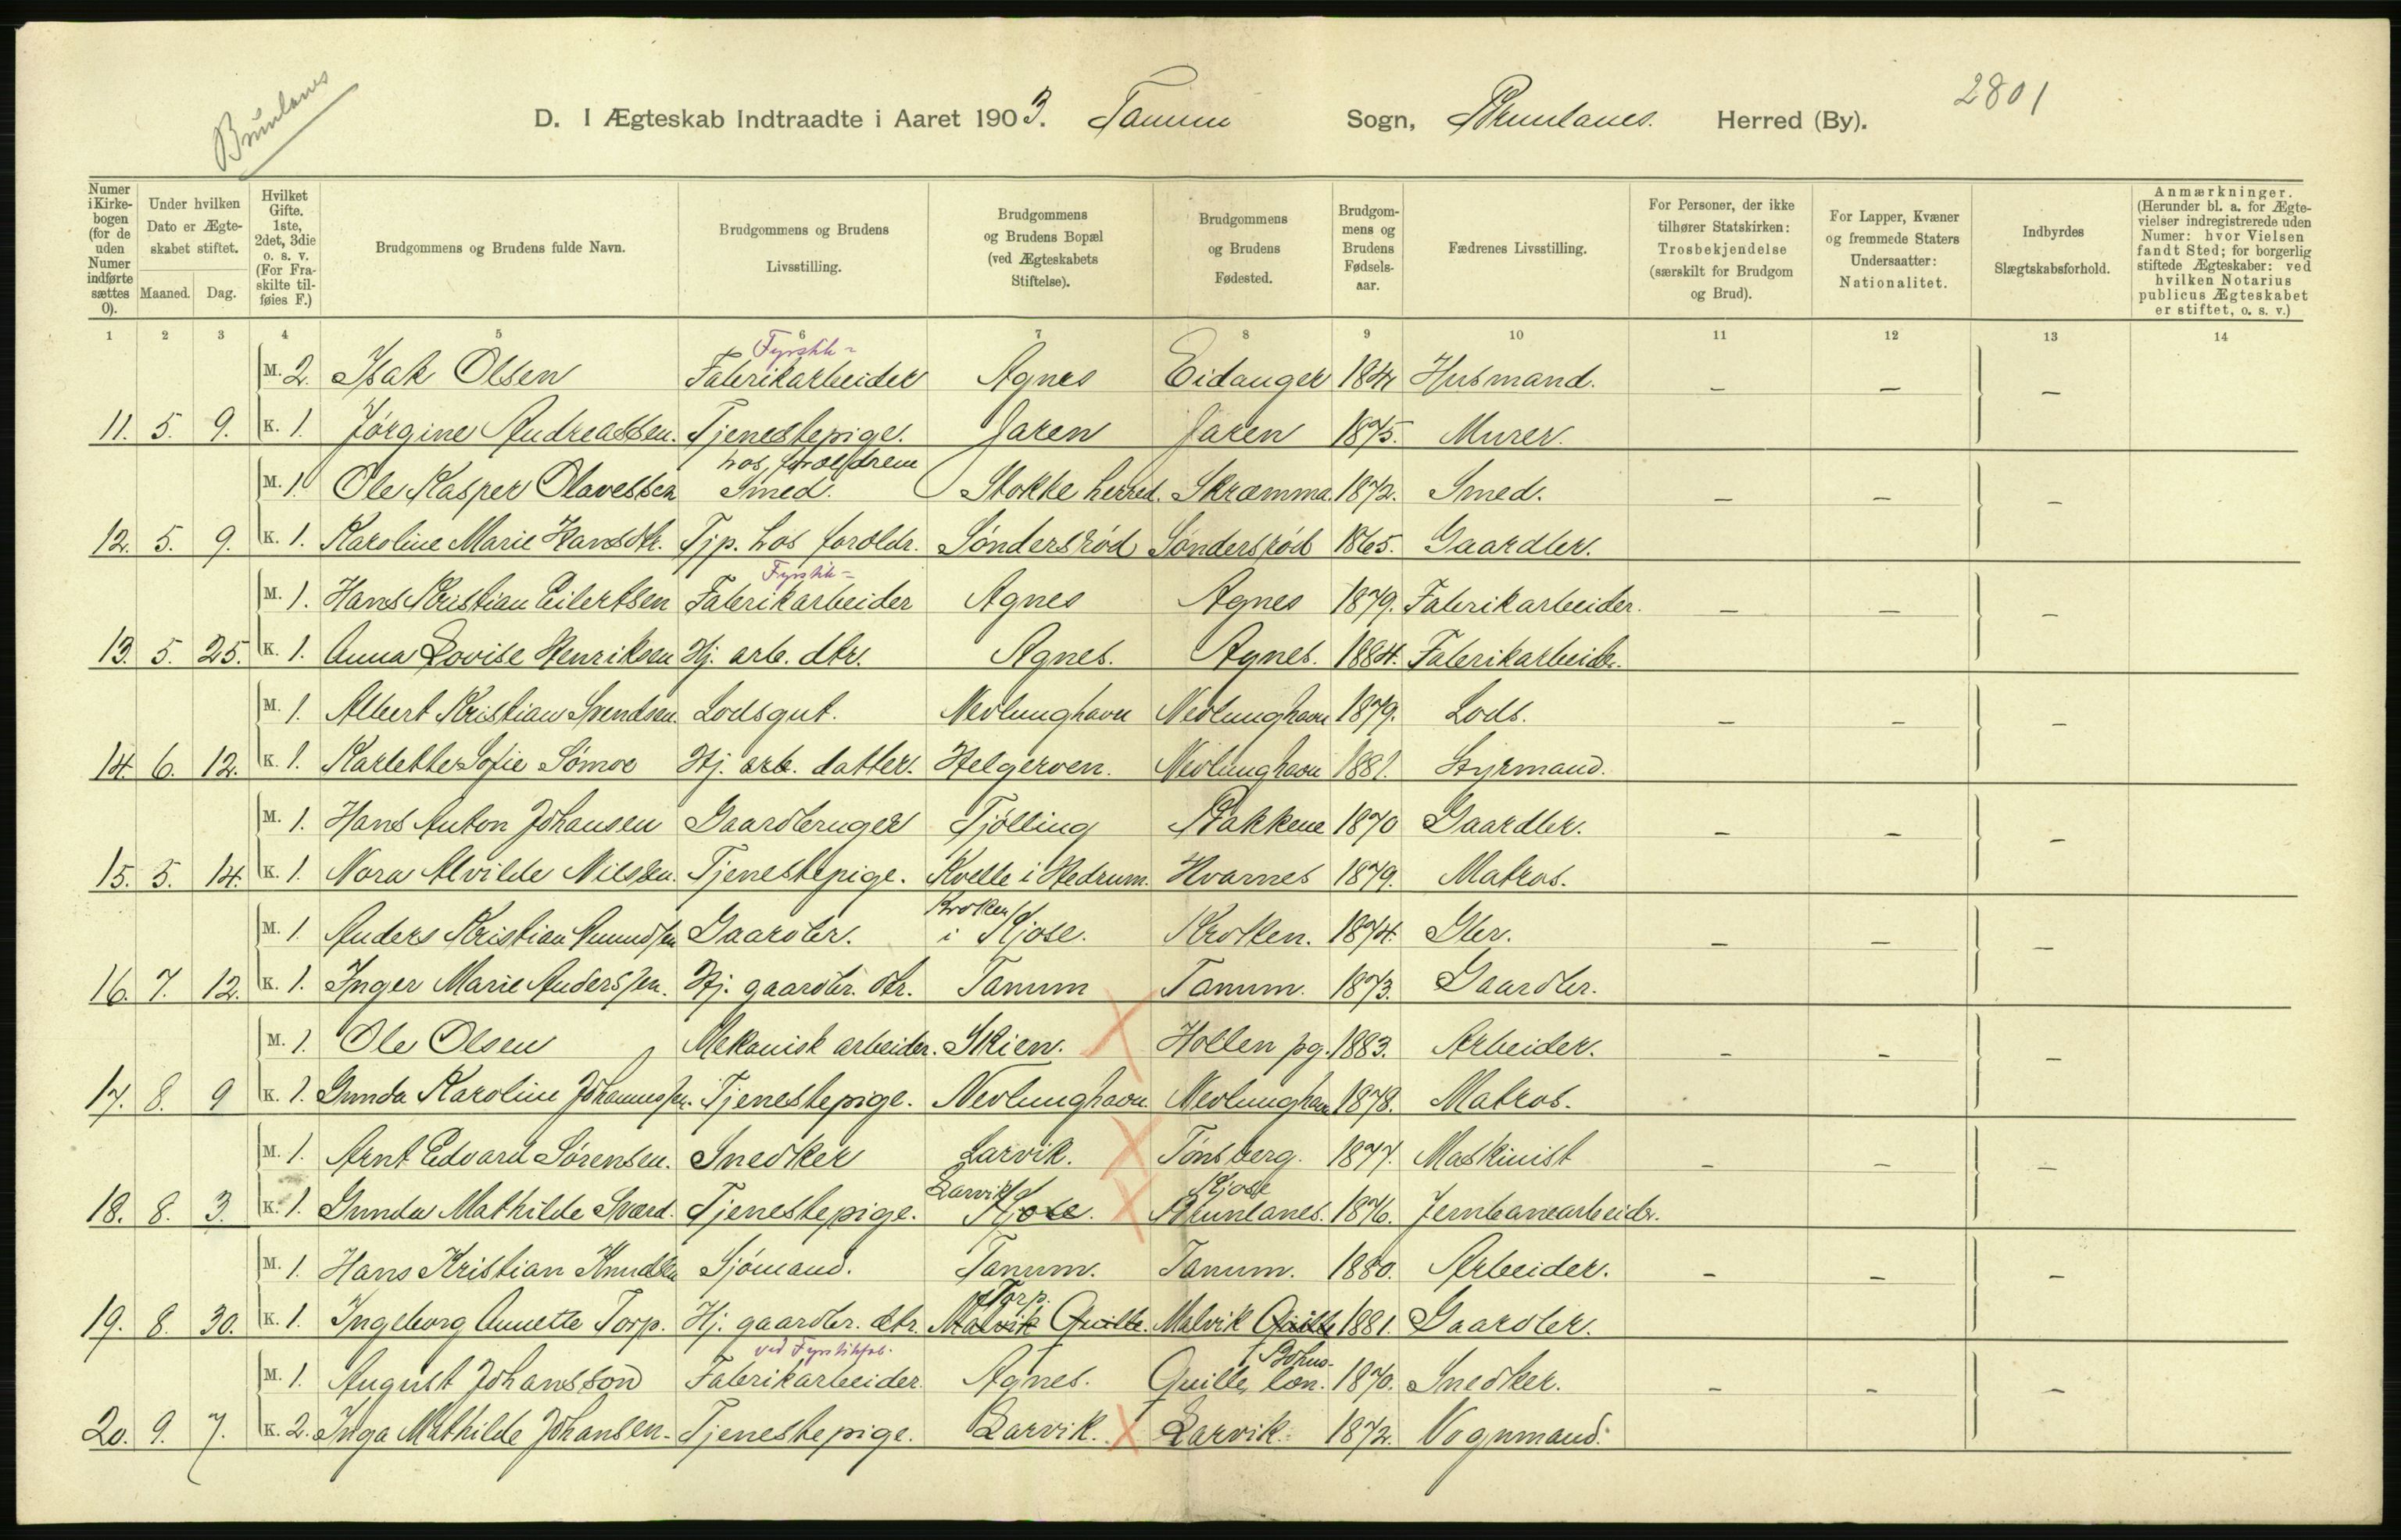 Brunlanes
2801
D. I Ægteskab Indtraadte i Aaret 1903. Tanum Sogn, Brunlanes. Herred (By).
Numer i Kirkebogen (for de uden Numer indførte sættes 0).
Under hvilken Dato er Ægteskabet stiftet.
Maaned. Dag.
Hvilket Gifte. 1ste, 2det, 3die o. s. v. (For Fraskilte tilføies F.)
Brudgommens og Brudens fulde Navn.
Brudgommens og Brudens Livsstilling.
Brudgommens og Brudens Bopæl (ved Ægteskabets Stiftelse).
Brudgommens og Brudens Fødested.
Brudgommens og Brudens Fødselsaar.
Fædrenes Livsstilling.
For Personer, der ikke tilhører Statskirken: Trosbekjendelse (særskilt for Brudgom og Brud).
For Lapper, Kvæner og fremmede Staters Undersaatter: Nationalitet.
Indbyrdes Slægtskabsforhold.
Anmærkninger. (Herunder bl. a. for Ægtevielser indregistrerede uden Numer: hvor Vielsen fandt Sted; for borgerlig stiftede Ægteskaber: ved hvilken Notarius publicus Ægteskabet er stiftet, o. s. v.)
1 2 3 4 5 6 7 8 9 10 11 12 13 14
Fyrstik-
M. 2. Isak Olsen Fabrikarbeider Agnes Eidanger Husmand. - - -
11. 5. 9. K. 1. Jørgine Andreassen. Tjenestepige. Jaren Jaren 1875. Murer.
hos forældrene
M. 1. Ole Kasper Olavessen Smed. Stokke herred. Skræmma. 1872. Smed. - - -
12. 5. 9. K. 1. Karoline Marie Hansdtr. Tjp. hos forældr. Søndersrød Søndersrød 1865. Gaardbr.
Fyrstik-
M. 1. Hans Kristian Eilertsen Fabrikarbeider Agnes Agnes 1879. Fabrikarbeider. - - -
13. 5. 25. K. 1. Anna Lovise Henriksen Hj. arb. dtr. Agnes. Agnes. 1884. Fabrikarbeider.
M. 1. Albert Kristian Svendsen. Lodsgut. Nevlunghavn Nevlunghavn 1879. Lods. - - -
14. 6. 12. K. 1. Karlette Sofie Sømoe Hj. arb. datter. Helgeroen. Nevlunghavn 1881. Styrmand.
M. 1. Hans Anton Johansen Gaardbruger Tjølling Bakkene 1870 Gaardbr. - - -
15. 5. 14. K. 1. Nora Alvilde Nilssen. Tjenestepige. Kvelle i Hedrum. Hvarnes 1879. Matros.
Kroken
M. 1. Anders Kristian Gaardbr. i Kjose. Kroken. 1874. Gbr. - - -
16. 7. 12. K. 1. Inger Marie Anderssen. Hj. gaardbr. dtr. Tanum Tanum. 1873. Gaardbr.
M. 1. Ole Olsen Mekanisk arbeider. Skien. Hollen pg. 1883. Arbeider. - - -
17. 8. 9 K. 1. Gunda Karoline Johannessen. Tjenestepige. Nevlunghavn. Nevlunghavn 1878. Matros.
M. 1. Arnt Edvard Sørensen. Snedker Larvik. Tønsberg. 1877. Maskinist - - -
Larvik Kjose
18. 8. 3. K. 1. Gunda Mathilde Sværd. Tjenestepige. Kjose. Brunlanes. 1876. Jernbanearbeidr.
M. 1. Hans Kristian Knudsen Sjømand. Tanum. Tanum. 1880. Arbeider. - - -
Torp.
19. 8. 30. K. 1. Ingeborg Annette Torp. Hj. gaardbr. dtr. Malvik Quille. Malvik Quille 1881. Gaardbr.
ved Fyrstikfab. Bohus-
M. 1. August Johansson Fabrikarbeider. Agnes. Quille, len. 1870. Snedker. - - -
20. 9. 7. K. 2. Inga Mathilde Johansen. Tjenestepige. Larvik. Larvik. 1872. Vognmand.